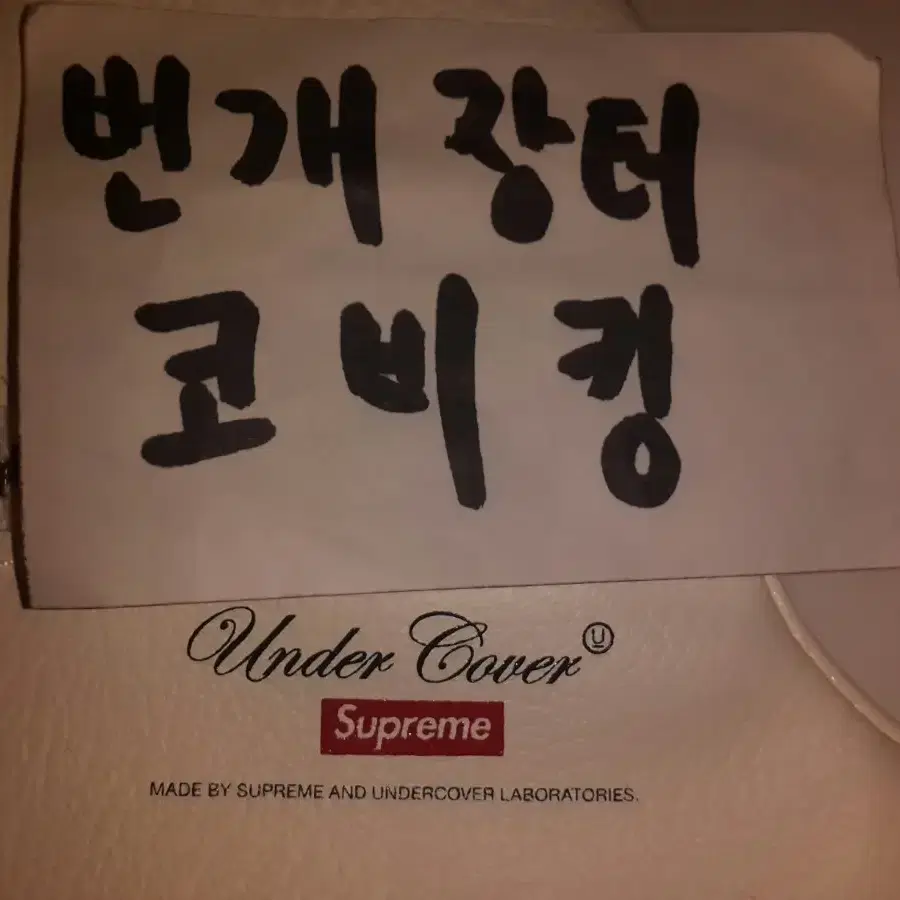 번개장터
코비킹
Under Cover Ⓤ
Supreme
MADE BY SUPREME AND UNDERCOVER LABORATORIES.